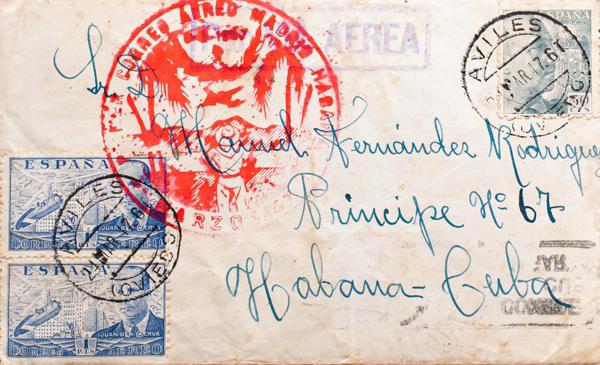 CORREO AEREO MADRID HABA
AEREA
AVILES
MAR.47.6
Sr. D.
Manuel Fernández Rodríguez
Principe Nº 67
Habana-Cuba
ESPAÑA
JUAN DE LA CIERVA
CORREO AEREO
AVILES
MAR
(OVIEDO)
ESPAÑA
1
PTS
JUAN DE LA CIERVA
CORREO AEREO